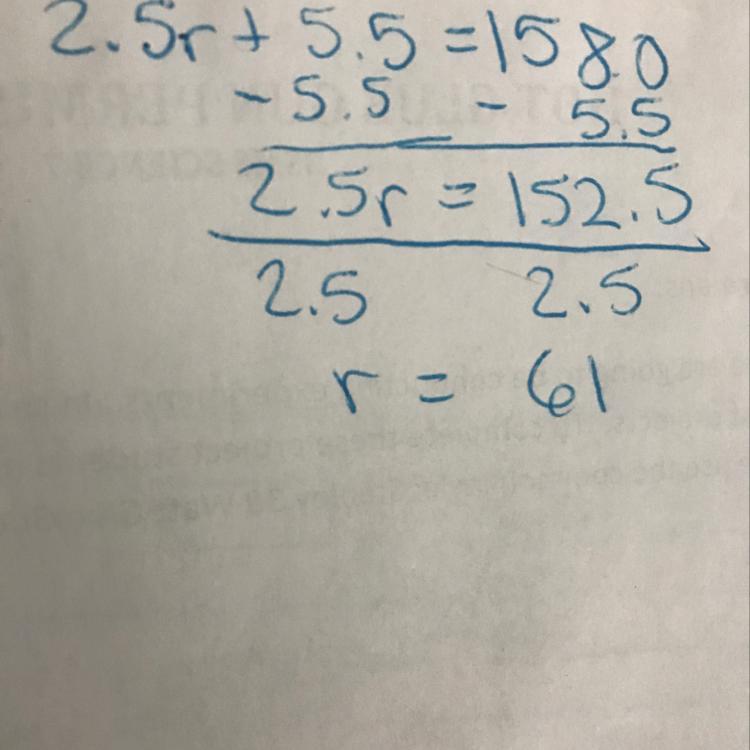 2.5r + 5.5 = 158.0
- 5.5 - 5.5
2.5r = 152.5
2.5 2.5
r = 61